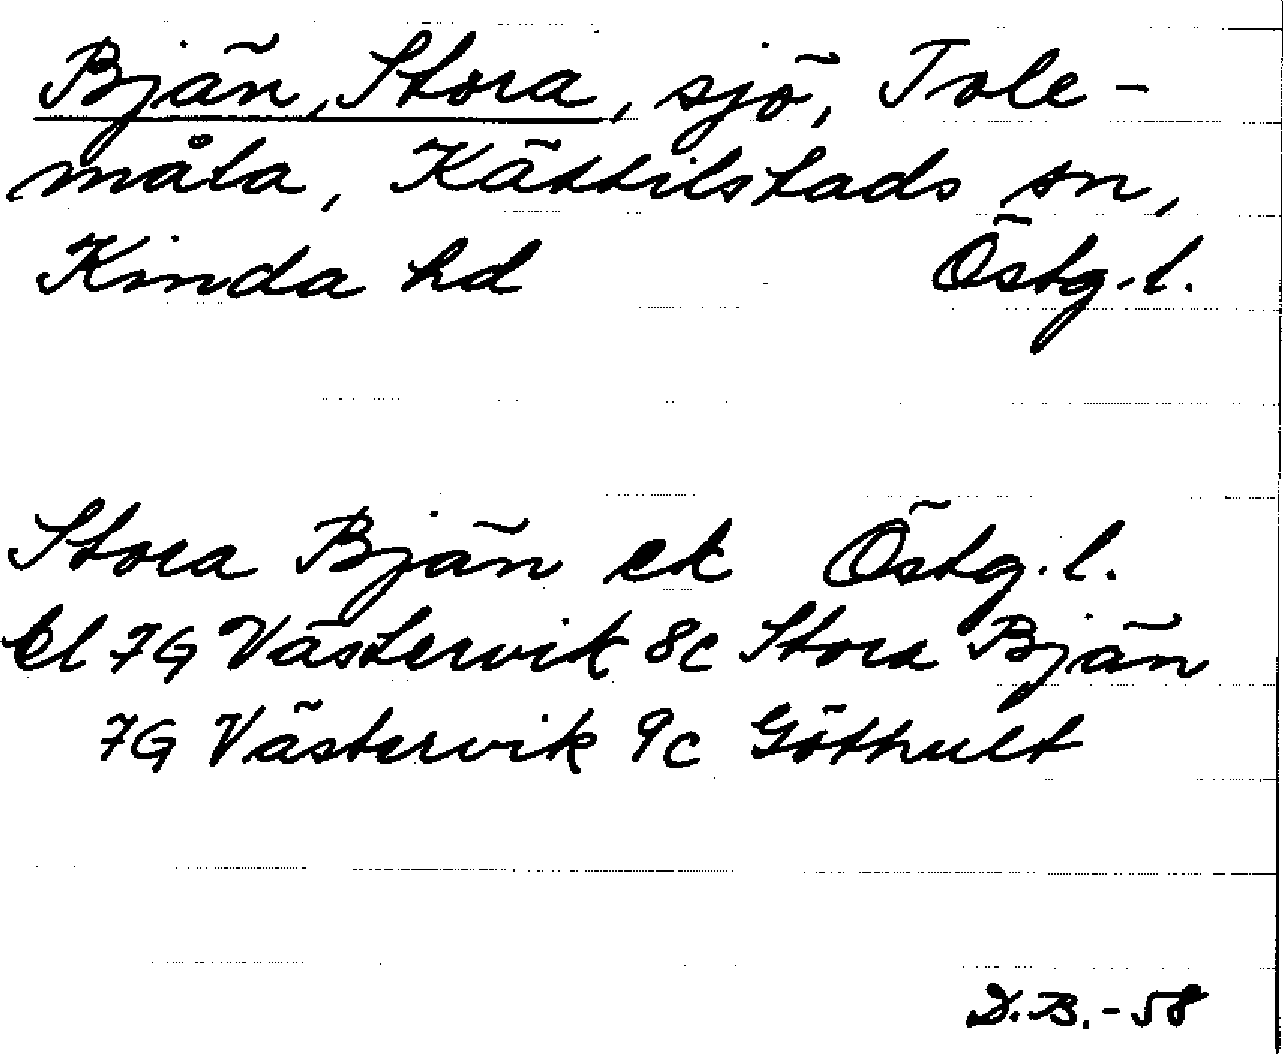 Bjän, Stora, sjö, Tole-
måla, Kättilstads sn,
Kinda hd Östg.l.
Stora Bjän ek Östg.l.
bl 7G Västervik 8c Stora Bjän
7G Västervik 9c Göthult
D.B.-58